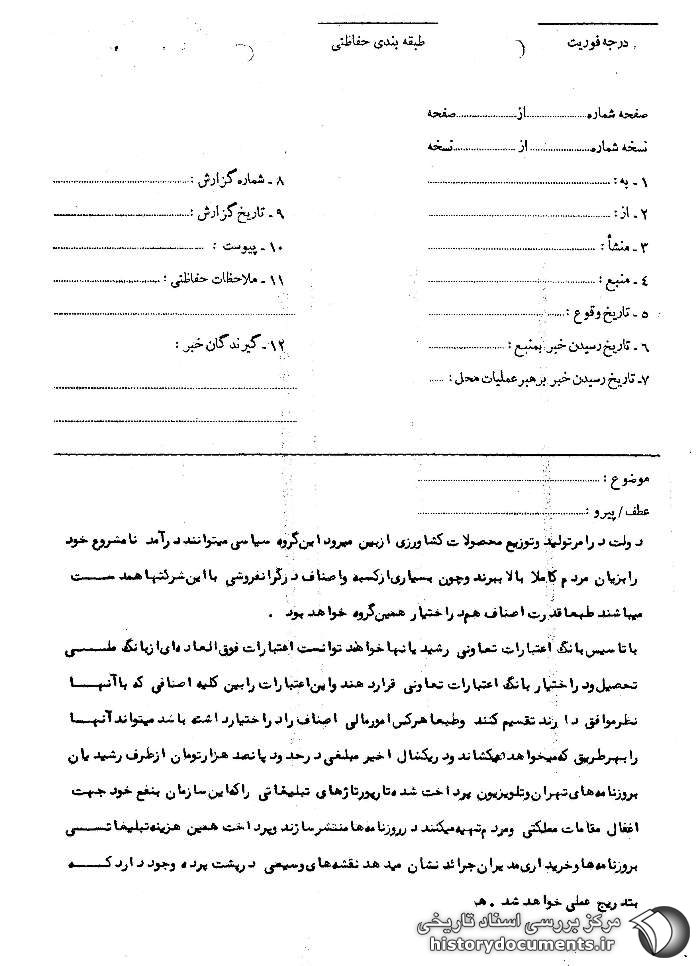 درجه فوریت
طبقه بندی حفاظتی
صفحه شماره ................ از ................ صفحه
نسخه شماره ................ از ................ نسخه
۱ - به :
۲ - از :
۳ - منشأ :
۴ - منبع :
۵ - تاریخ وقوع :
۶ - تاریخ رسیدن خبر بمنبع :
۷ - تاریخ رسیدن خبر برهبر عملیات محل :
۸ - شماره گزارش :
۹ - تاریخ گزارش :
۱۰ - پیوست :
۱۱ - ملاحظات حفاظتی :
۱۲ - گیرندگان خبر :
موضوع :
عطف / پیرو :
دولت در امر تولید و توزیع محصولات کشاورزی از بین میرود این گروه سیاسی میتوانند درآمد نامشروع خود
را بزیان مردم کاملا بالا ببرند و چون بسیاری از کسبه و اصناف در گرانفروشی با این شرکتها همدست
میباشند طبعا قدرت اصناف هم در اختیار همین گروه خواهد بود .
با تاسیس بانک اعتبارات تعاونی رشیدیانها خواهند توانست اعتبارات فوق العاده ای از بانک ملی
تحصیل و در اختیار بانک اعتبارات تعاونی قرار دهند و این اعتبارات را بین کلیه اصنافی که با آنها
نظر موافق دارند تقسیم کنند و طبعا هر کس امور مالی اصناف را در اختیار داشته باشد میتواند آنها
را بهر طریق که میخواهد بکشاند و در یکسال اخیر مبلغی در حدود پانصد هزار تومان از طرف رشیدیان
بروزنامه های تهران و تلویزیون پرداخت شده تا رپورتاژهای تبلیغاتی را که این سازمان بنفع خود جهت
اغفال مقامات مملکتی و مردم تهیه میکنند در روزنامه ها منتشر سازند و پرداخت همین هزینه تبلیغاتی
بروزنامه ها و خریداری مدیران جرائد نشان میدهد نقشه های وسیعی در پشت پرده وجود دارد که
بتدریج عملی خواهد شد . ه
مرکز بررسی اسناد تاریخی
historydocuments.ir